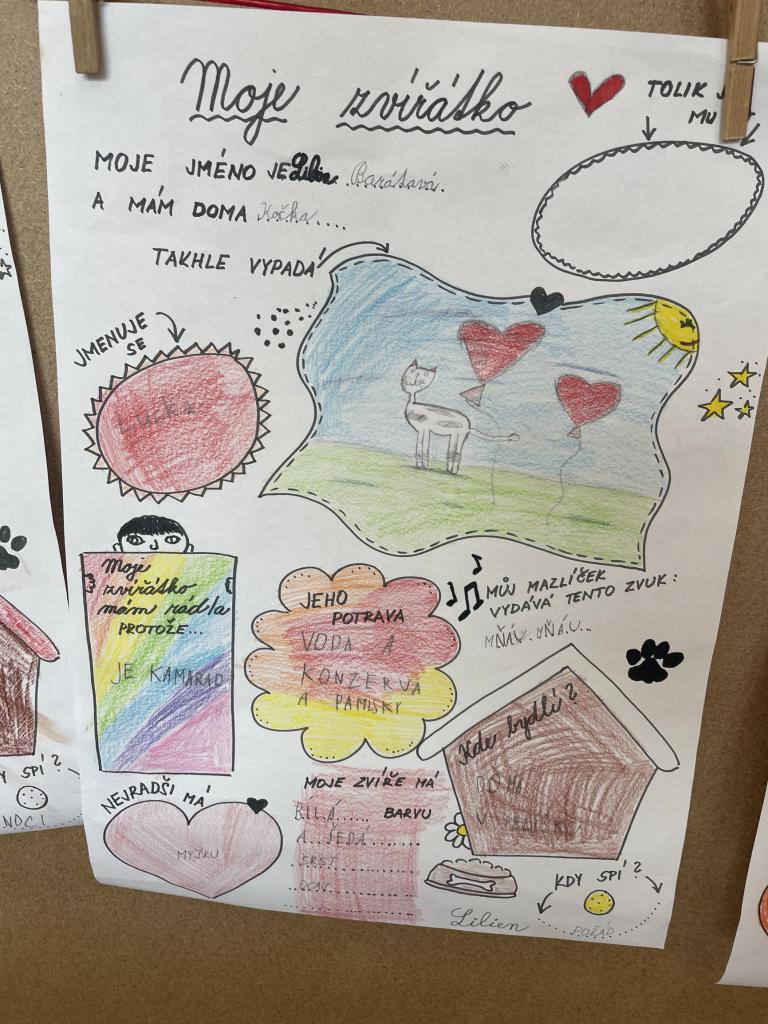 Moje zvířátko
TOLIK
MU
MOJE JMÉNO JE Lilien
A MÁM DOMA Kočka
TAKHLE VYPADÁ
JMENUJE
SE
Moje
zvířátko
mám rád/a
PROTOŽE...
JE KAMARÁD
JEHO
POTRAVA
VODA A
KONZERVA
A PAMLSKY
MŮJ MAZLÍČEK
VYDÁVÁ TENTO ZVUK:
MŇÁU. MŇÁU...
Kde bydlí?
DOMA
V
NEJRADŠI MÁ
MYŠKU
MOJE ZVÍŘE MÁ
BÍLÁ..... BARVU
A ŠEDÁ
SRST
OCAS
KDY SPÍ?
POŘÁD
Lilien
Y SPÍ?
NOCI